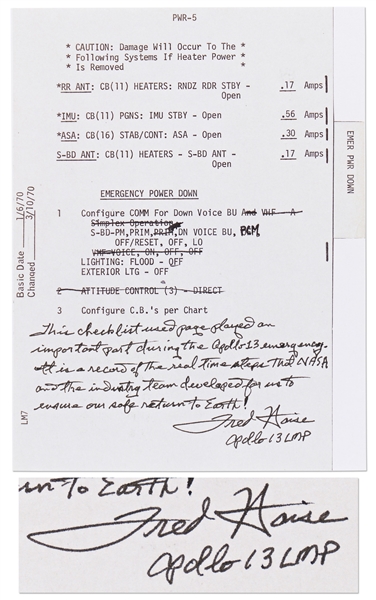 PWR-5
* CAUTION: Damage Will Occur To The *
* Following Systems If Heater Power *
* Is Removed *
*RR ANT: CB(11) HEATERS: RNDZ RDR STBY - Open .17 Amps
*IMU: CB(11) PGNS: IMU STBY - Open .56 Amps
*ASA: CB(16) STAB/CONT: ASA - Open .30 Amps
S-BD ANT: CB(11) HEATERS - S-BD ANT - Open .17 Amps
EMER PWR DOWN
EMERGENCY POWER DOWN
1 Configure COMM For Down Voice BU And VHF - A
Simplex Operation
S-BD-PM,PRIM,PRIM,DN VOICE BU, PCM,
OFF/RESET, OFF, LO
VHF-VOICE, ON, OFF, OFF
LIGHTING: FLOOD - OFF
EXTERIOR LTG - OFF
2 ATTITUDE CONTROL (3) - DIRECT
3 Configure C.B.'s per Chart
Basic Date 1/6/70
Changed 3/10/70
LM7
This checklist used page played an
important part during the Apollo 13 emergency.
It is a record of the real time steps that NASA
and the industry team developed for us to
ensure our safe return to Earth!
Fred Haise
Apollo 13 LMP
urn to Earth!
Fred Haise
Apollo 13 LMP